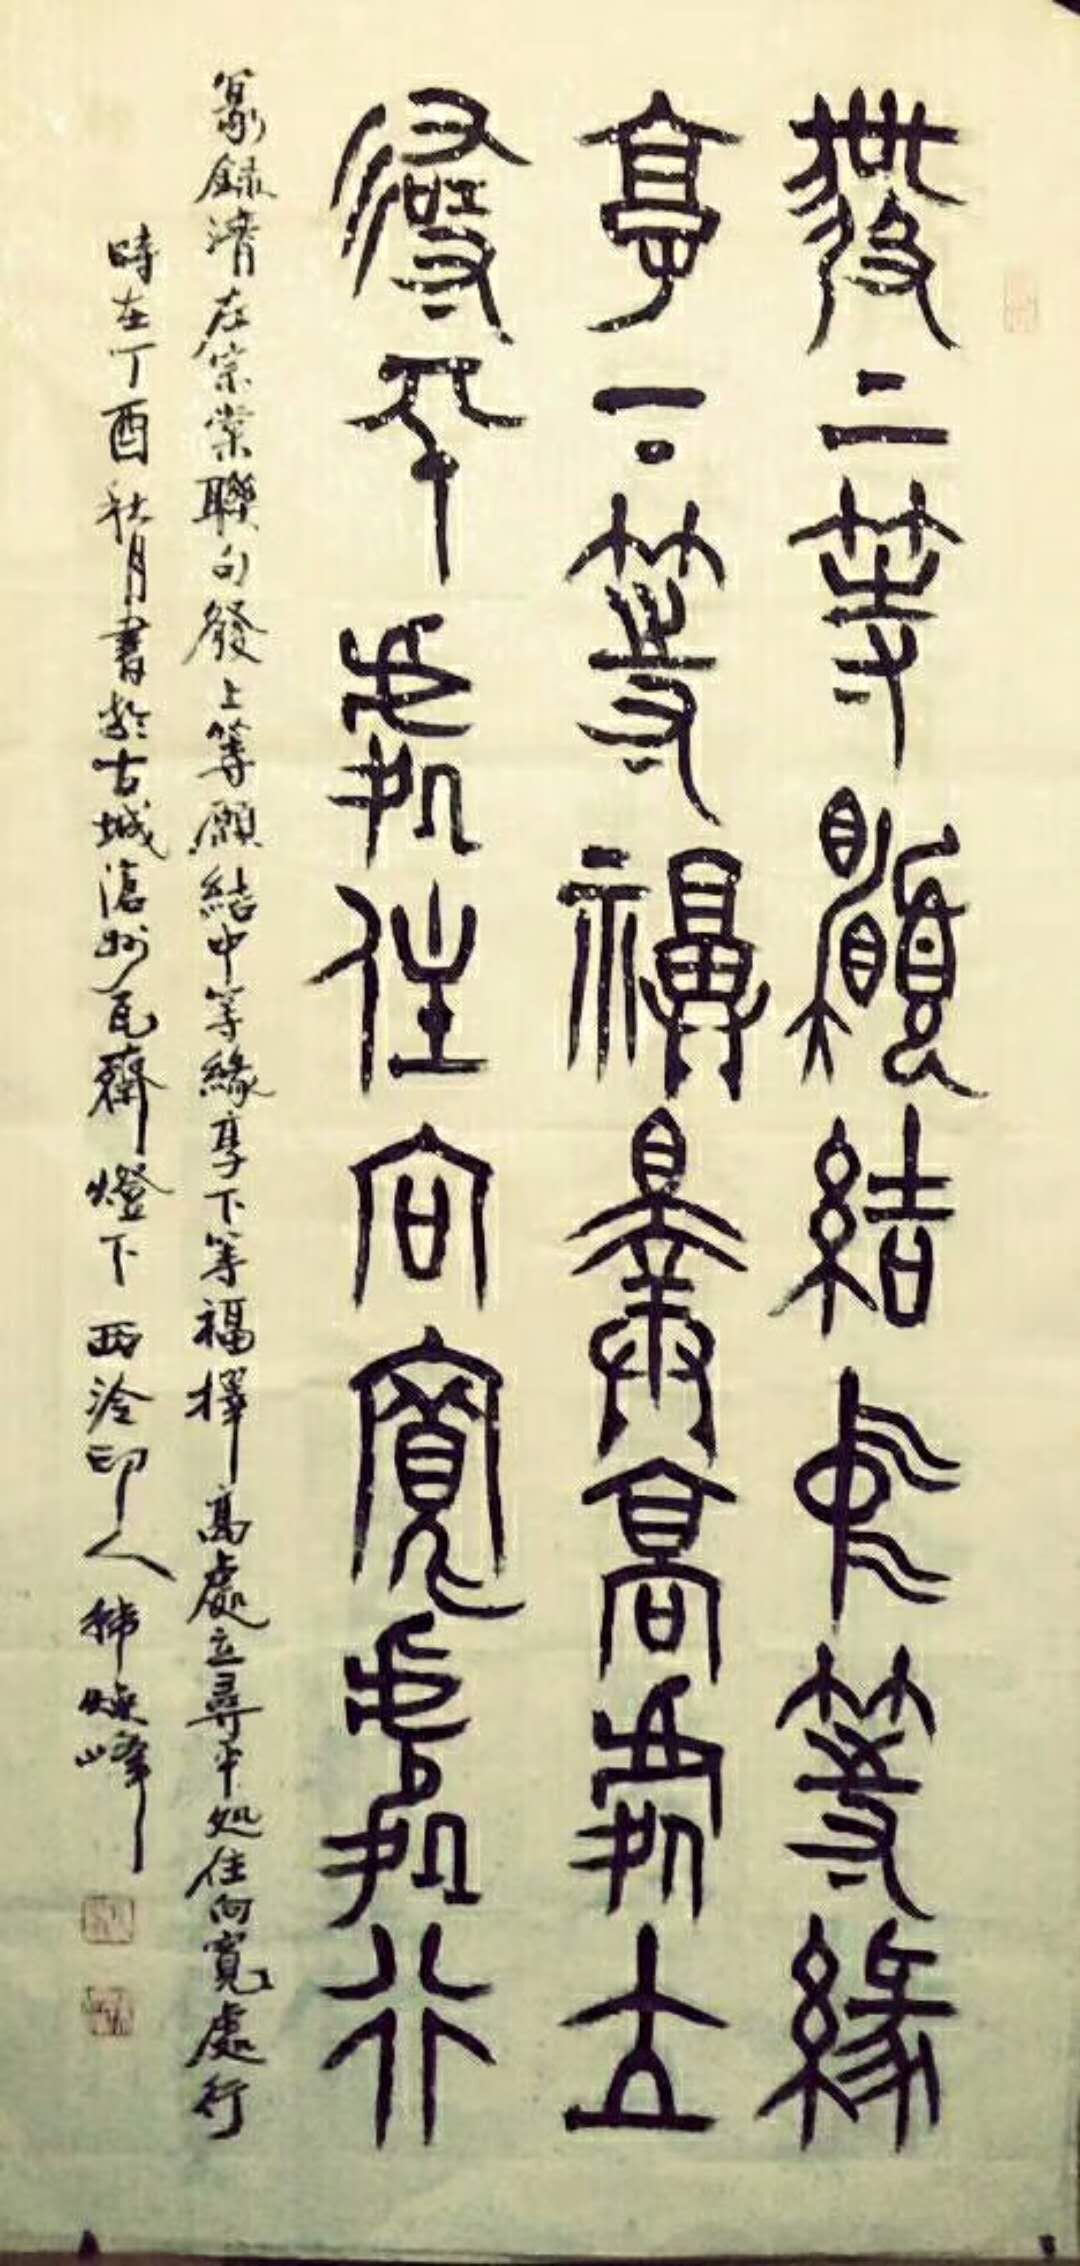 發上等願結中等緣
享下等福擇高處立
尋平處住向寬處行
篆錄清左宗棠聯句發上等願結中等緣享下等福擇高處立尋平処住向寬處行
時在丁酉秋月書於古城滄州瓦齋燈下西泠印人韩焕峰